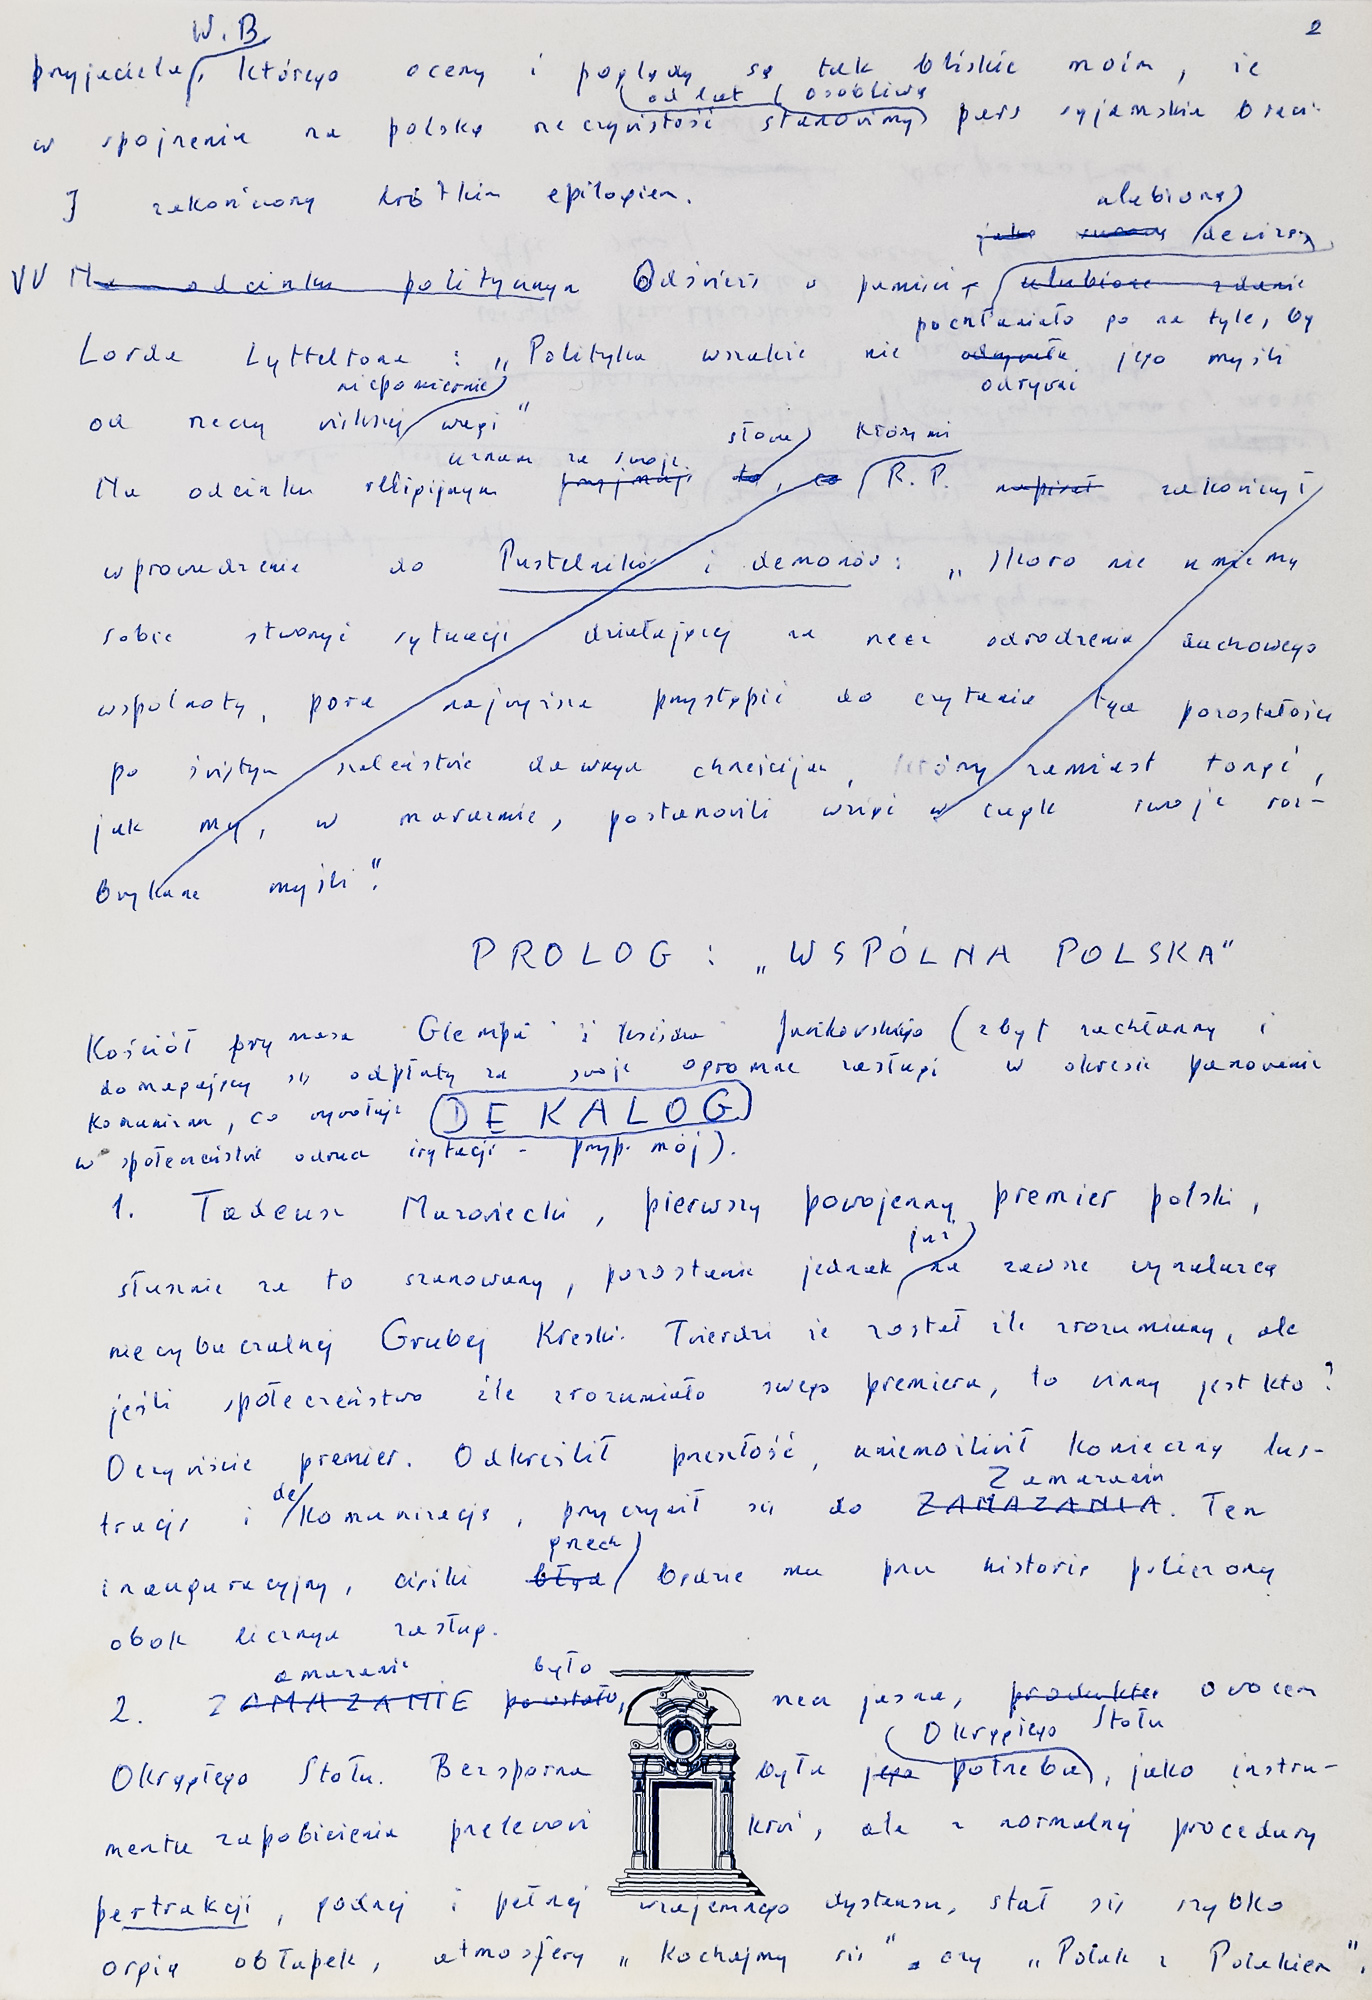 2
W. B.
przyjaciela, którego oceny i poglądy są tak bliskie moim, że
od lat osobliwą
w spojrzeniu na polską rzeczywistość stanowimy parę syjamskich braci.
I zakończony krótkim epilogiem.
ulubioną
jako dewizę
VV Na odcinku politycznym Odśwież w pamięci ulubione zdanie
pochłaniało go na tyle, by
Lorda Lytteltona : „Polityka wszakże nie jego myśli
niepomiernie odrywać
od rzeczy większej wagi"
słowa, którymi
uznam za swoje
Na odcinku religijnym przyjmuję to, co R. P. napisał zakończył
wprowadzenie do Pustelników i demonów: „Skoro nie umiemy
sobie stworzyć sytuacji działającej na rzecz odrodzenia duchowego
wspólnoty, pora najwyższa przystąpić do czytania tych pozostałości
po świętym szaleństwie dawnych chrześcijan, którzy zamiast tonąć,
jak my, w marazmie, postanowili wziąć w cugle swoje roz-
brykane myśli".
PROLOG : „WSPÓLNA POLSKA"
Kościół prymasa Glempa i księdza Jankowskiego (zbyt zachłanny i
domagający się odpłaty za swoje ogromne zasługi w okresie panowania
komunizmu, co wywołuje
DEKALOG
w społeczeństwie odruch irytacji - przyp. mój).
1. Tadeusz Mazowiecki, pierwszy powojenny premier polski,
już
słusznie za to szanowany, pozostanie jednak na zawsze wynalazcą
niewybaczalnej Grubej Kreski. Twierdzi że został źle zrozumiany, ale
jeśli społeczeństwo źle zrozumiało swego premiera, to winny jest kto?
Oczywiście premier. Odkreślił przeszłość, uniemożliwił konieczną lus-
de Zamazania
trację i komunizację, przyczynił się do ZAMAZANIA. Ten
grzech
inauguracyjny, ciężki błąd będzie mu przez historię policzony
obok licznych zasług.
amazanie było
2. ZAMAZANIE powstało, rzecz jasna, produktem owocem
Okrągłego Stołu
Okrągłego Stołu. Bezsporna była jego potrzeba, jako instru-
mentu zapobieżenia przelewowi krwi, ale z normalnej procedury
pertrakcji, godnej i pełnej wzajemnego dystansu, stał się szybko
orgią obłapek, atmosfery „Kochajmy się", czy „Polak z Polakiem".